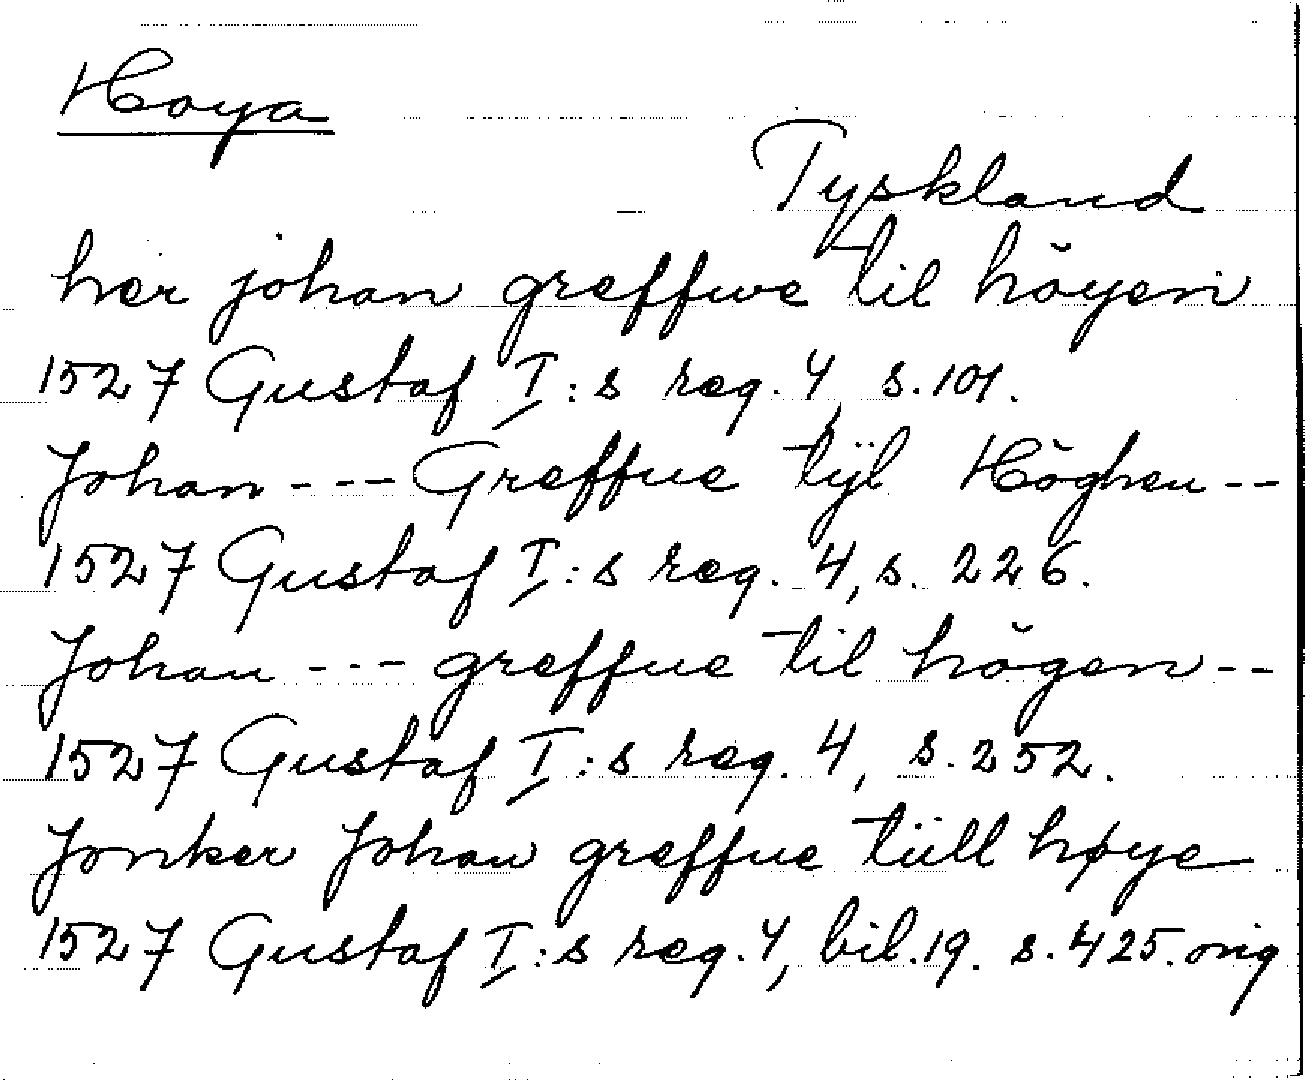 Hoya
Tyskland
her johan greffwe til höyen
1527 Gustaf I:s reg. 4, s. 101.
Johan --- Greffue tÿl Höghen --
1527 Gustaf I:s reg. 4, s. 226.
Johan --- greffue til högen --
1527 Gustaf I:s reg. 4, s. 252.
Jonker Johan greffue tüll høye
1527 Gustaf I:s reg. 4, bil. 19. s. 425. orig